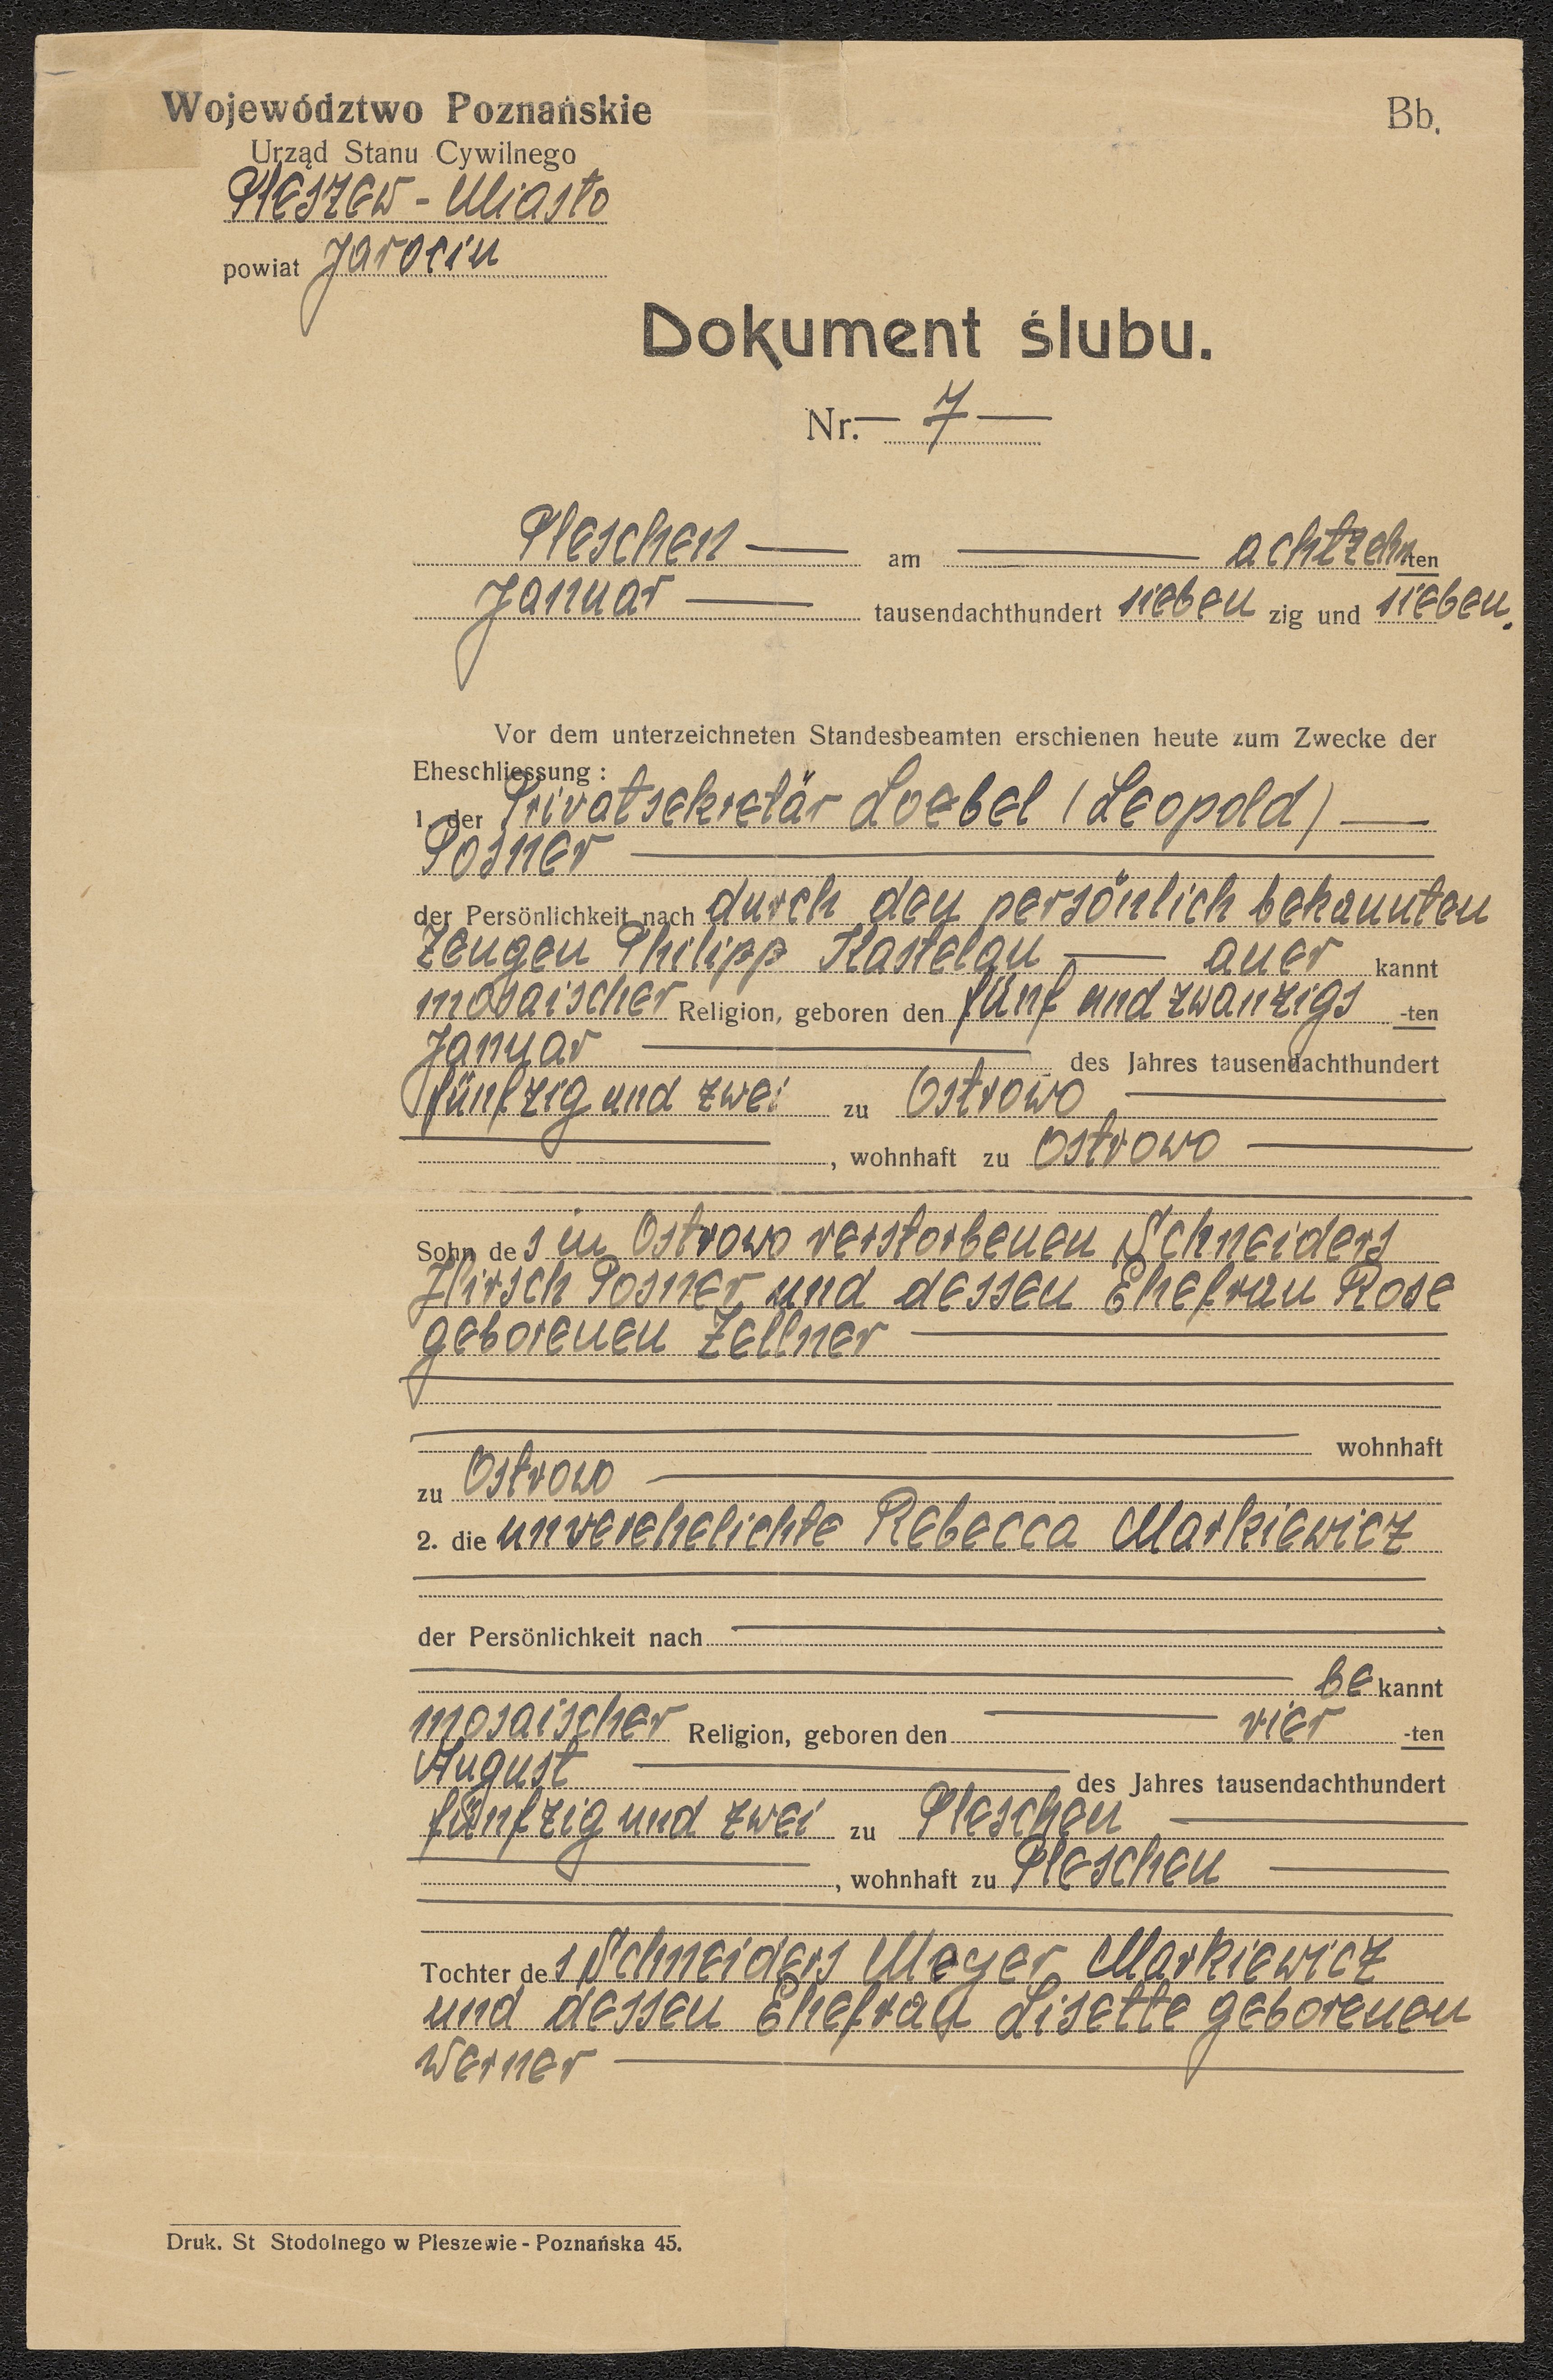 Województwo Poznańskie
Bb.
Urząd Stanu Cywilnego
Pleszew - Miasto
powiat Jarocin
Dokument ślubu.
Nr. — 7 —
Pleschen — am — achtzehnten
Januar — tausendachthundert sieben zig und sieben.
Vor dem unterzeichneten Standesbeamten erschienen heute zum Zwecke der
Eheschliessung :
1. der Privatsekretär Loebel (Leopold) —
Posner —
der Persönlichkeit nach durch den persönlich bekannten
Zeugen Philipp Kastelan — aner kannt
mosaischer Religion, geboren den fünf und zwanzigs -ten
Januar — des Jahres tausendachthundert
fünfzig und zwei zu Ostrowo —
—, wohnhaft zu Ostrowo —
Sohn des in Ostrowo verstorbenen Schneiders
Hirsch Posner und dessen Ehefrau Rose
geborenen Zellner —
— wohnhaft
zu Ostrowo —
2. die unverehelichte Rebecca Markiewicz
der Persönlichkeit nach —
— be kannt
mosaischer Religion, geboren den — vier -ten
August — des Jahres tausendachthundert
fünfzig und zwei zu Pleschen —
—, wohnhaft zu Pleschen —
Tochter des Schneiders Meyer Markiewicz
und dessen Ehefrau Lisette geborenen
Werner —
Druk. St Stodolnego w Pleszewie - Poznańska 45.